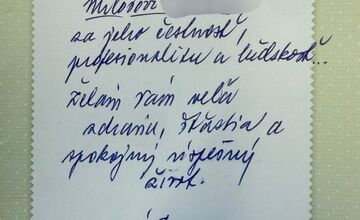 Milošovi
za jeho čestnosť,
profesionalitu a ľudskosť...
Želám Vám veľa
zdravia, šťastia a
spokojný úspešný
život.